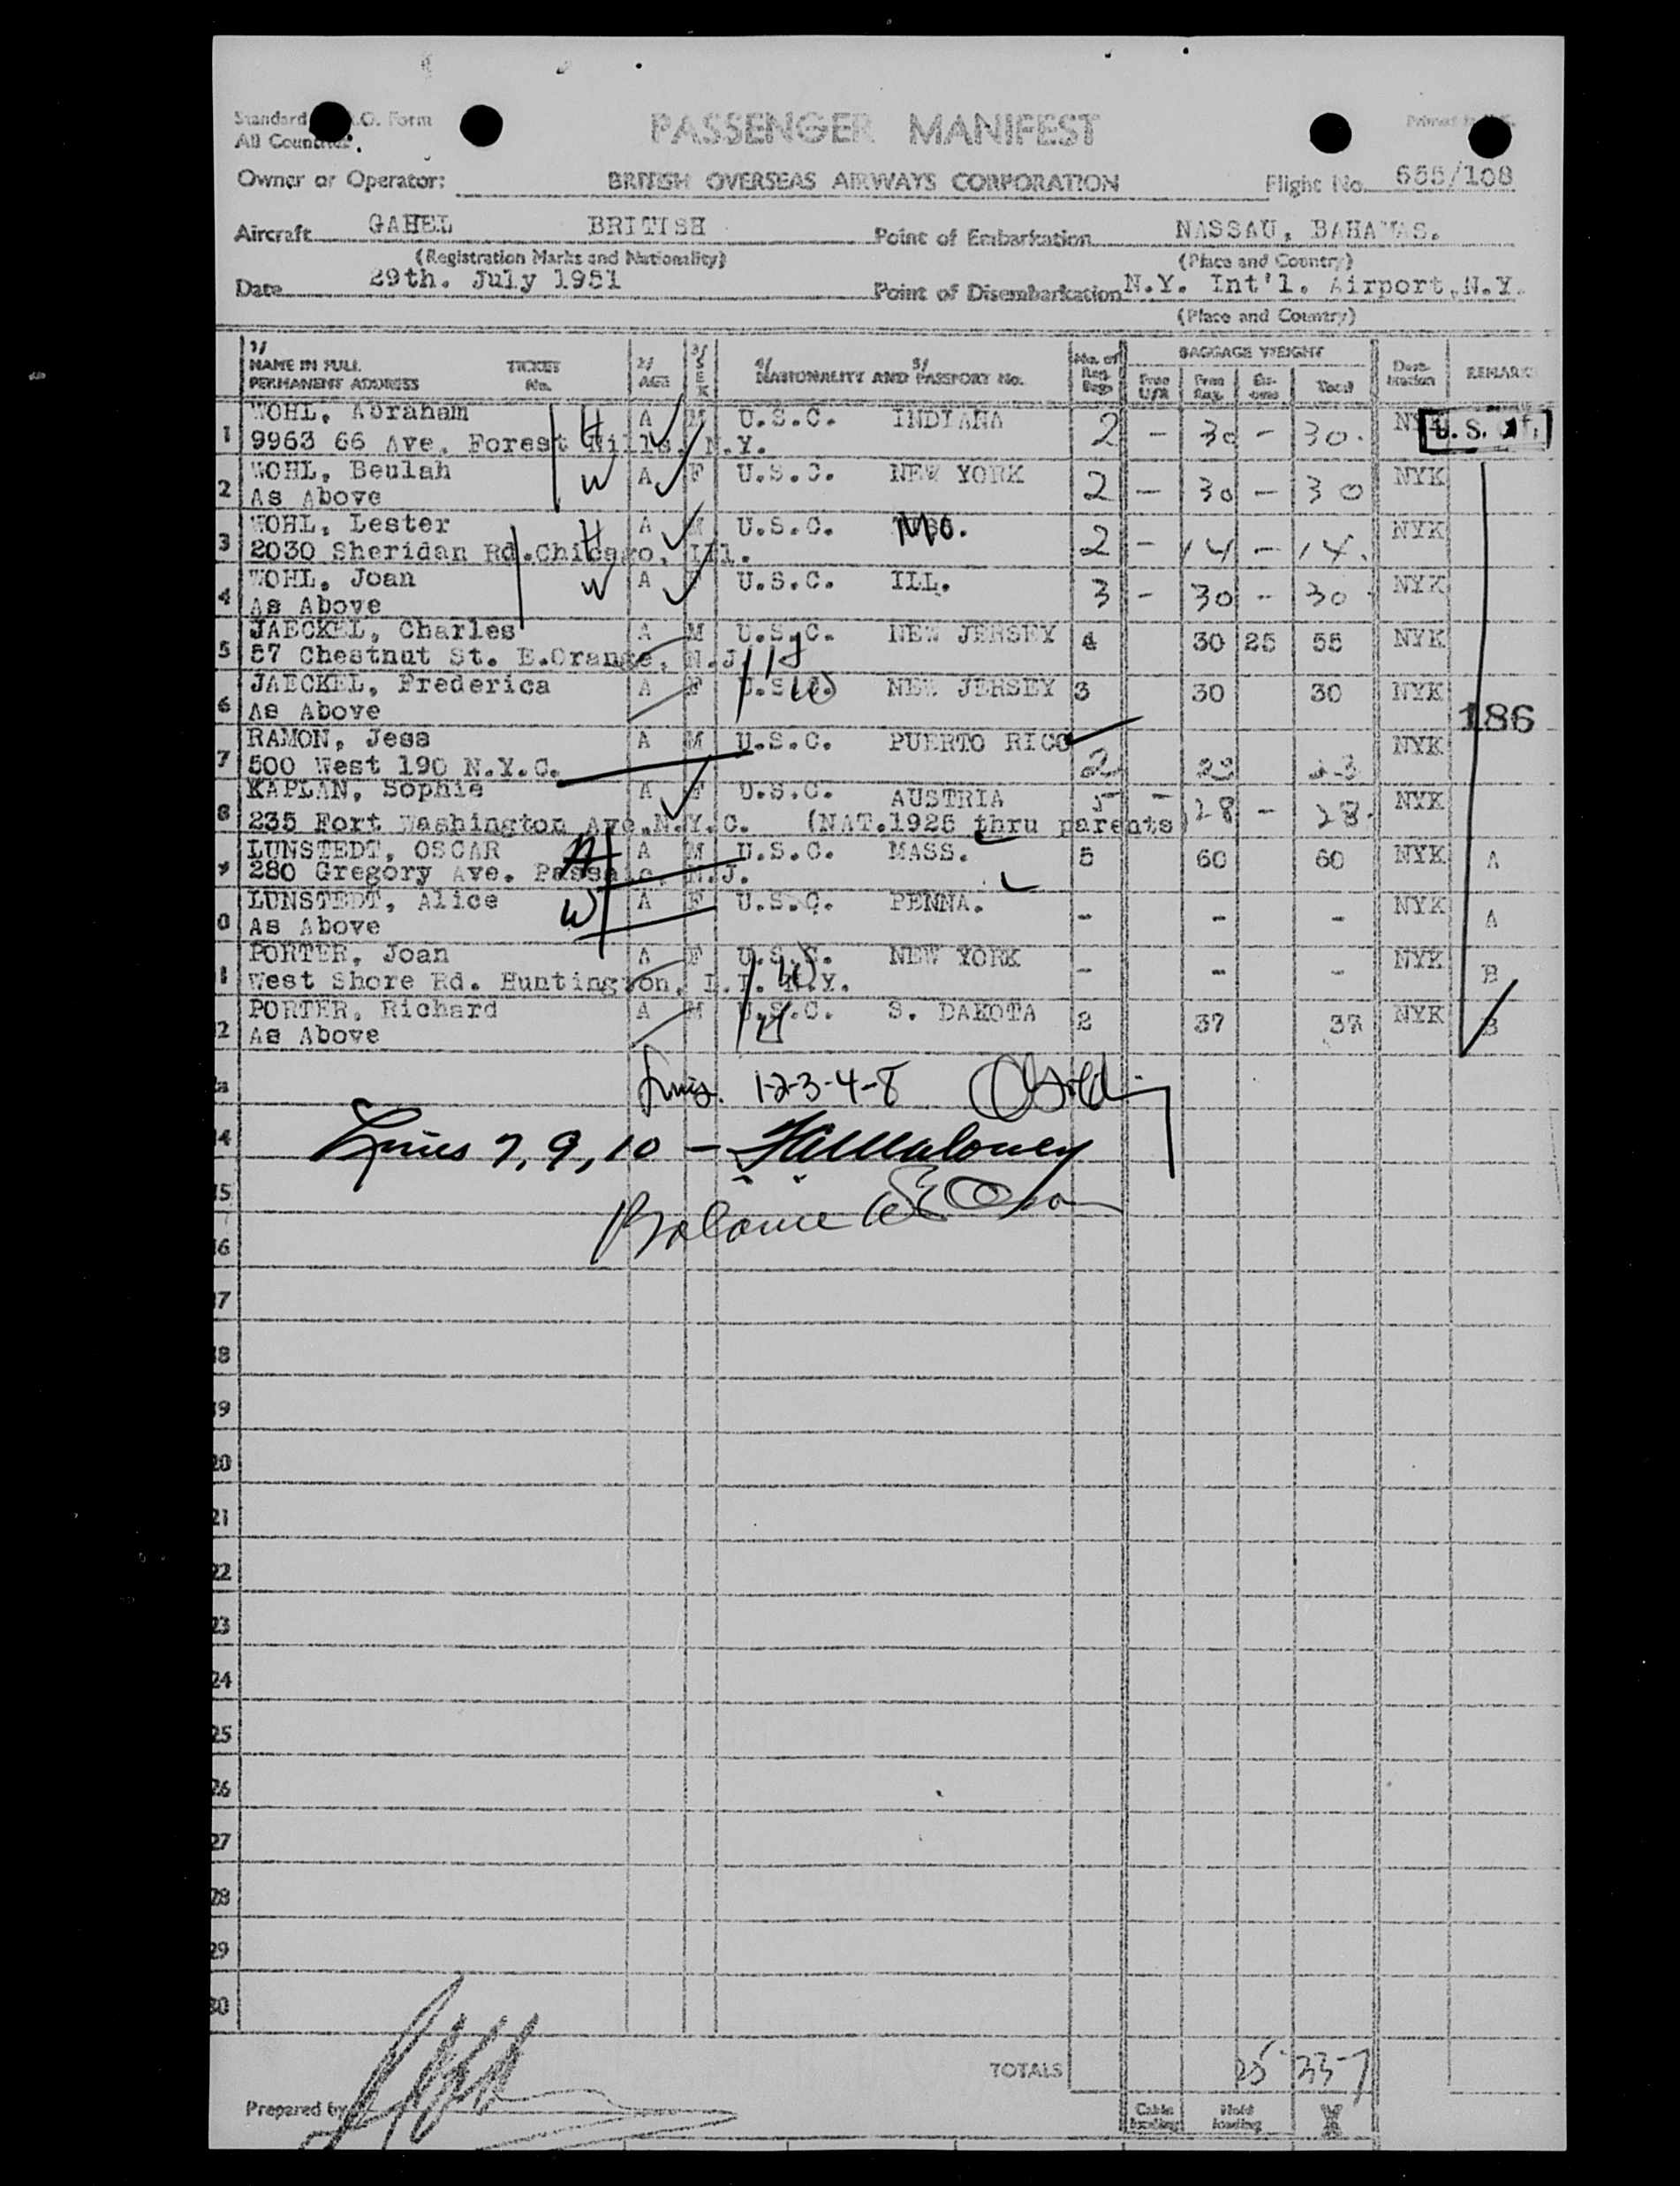 Standard I.C.A.O. Form
All Countries.
PASSENGER MANIFEST
Owner or Operator: BRITISH OVERSEAS AIRWAYS CORPORATION Flight No. 655/108
Aircraft GAHEL BRITISH Point of Embarkation NASSAU, BAHAMAS.
(Registration Marks and Nationality) (Place and Country)
Date 29th. July 1951 Point of Disembarkation N.Y. Int'l. Airport, N.Y.
(Place and Country)
1/ NAME IN FULL PERMANENT ADDRESS TICKET No. 2/ AGE 3/ SEX 4/ NATIONALITY AND 5/ PASSPORT No. No. of Reg. Bags BAGGAGE WEIGHT Free U/R Free Reg. Ex-cess Total Dest-ination REMARKS
1 WOHL, Abraham H A M U.S.C. INDIANA 2 - 30 - 30. NYK U.S.
9963 66 Ave. Forest Hills, N.Y.
2 WOHL, Beulah W A F U.S.C. NEW YORK 2 - 30 - 30 NYK
As Above
3 WOHL, Lester H A M U.S.C. MO. 2 - 14 - 14. NYK
2030 Sheridan Rd. Chicago, Ill.
4 WOHL, Joan W A F U.S.C. ILL. 3 - 30 - 30 NYK
As Above
5 JAECKEL, Charles A M U.S.C. NEW JERSEY 4 30 25 55 NYK
57 Chestnut St. E.Orange, N.J. H
6 JAECKEL, Frederica A F U.S.C. W NEW JERSEY 3 30 30 NYK
As Above
186
7 RAMON, Jess A M U.S.C. PUERTO RICO 2 23 23 NYK
500 West 190 N.Y.C.
8 KAPLAN, Sophie A F U.S.C. AUSTRIA 5 - 28 - 28. NYK
235 Fort Washington Ave.N.Y.C. (NAT.1925 thru parents)
9 LUNSTEDT, OSCAR H A M U.S.C. MASS. 5 60 60 NYK A
280 Gregory Ave. Passaic, N.J.
0 LUNSTEDT, Alice W A F U.S.C. PENNA. - - - NYK A
As Above
1 PORTER, Joan A F U.S.C. NEW YORK - - - NYK B
West Shore Rd. Huntington, L.I. N.Y. W
2 PORTER, Richard A M U.S.C. S. DAKOTA 2 37 37 NYK B
As Above H
Lines 1-2-3-4-8
14 Lines 7, 9, 10 - Maloney
15 Balance
16
17
18
19
20
21
22
23
24
25
26
27
28
29
30
TOTALS 25 337
Prepared by
Cabin loading Hold loading